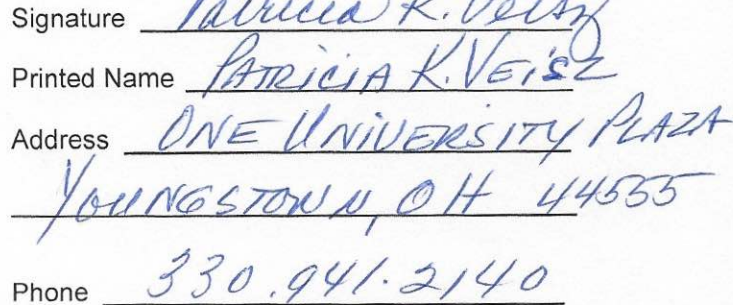 Signature Patricia K. Veisz
Printed Name PATRICIA K. VEISZ
Address ONE UNIVERSITY PLAZA
YOUNGSTOWN, OH 44555
Phone 330.941.2140